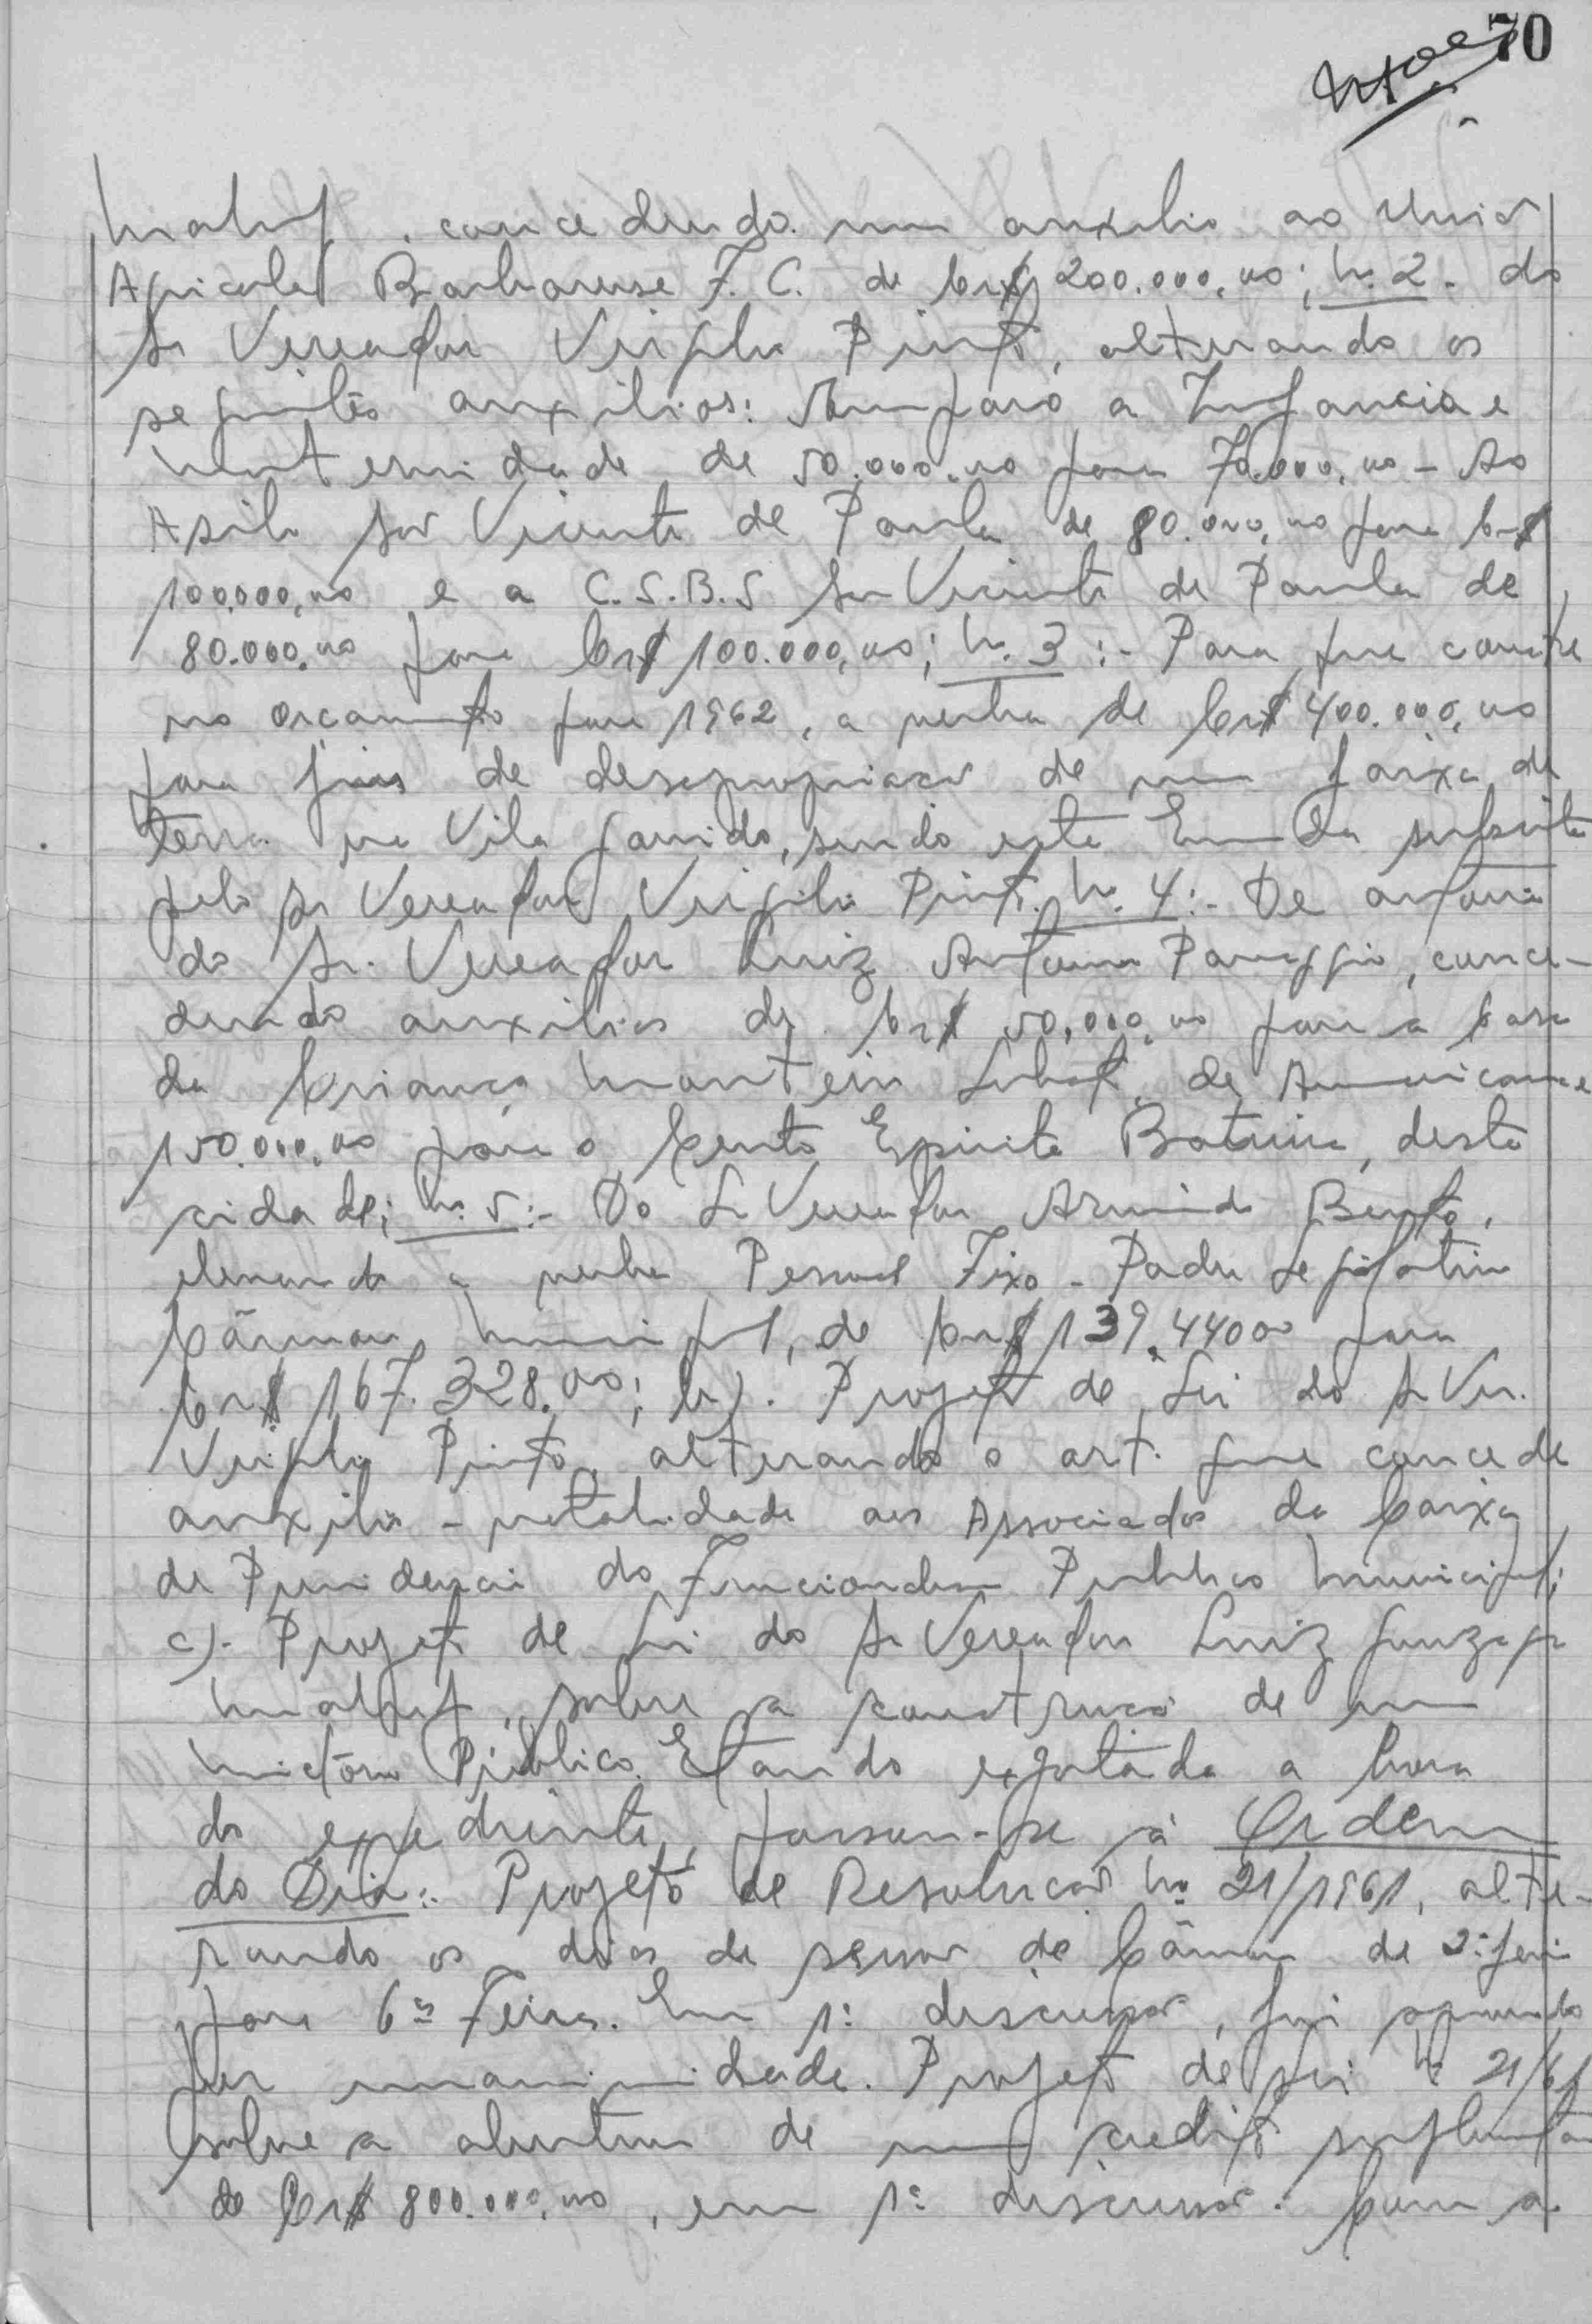 70
Maluf, concedendo um auxilio ao União
Agricola Barbarense F. C. de Cr$ 200.000,00; n. 2 - do
Sr Vereador Virgilio Pinto, alterando os
seguintes auxilios: Amparo a Infancia e
Maternidade de 50.000,00 para 70.000,00 - Ao
Asilo São Vicente de Paula de 80.000,00 para Cr$
100.000,00 e a C.S.B.S São Vicente de Paula de
80.000,00 para Cr$ 100.000,00; n. 3 :- Para que conste
no orçamento para 1962, a verba de Cr$ 400.000,00
para fins de desapropriação de um faixa de
terra na Vila Garrido, sendo esta Emenda subscrita
pelo Sr Vereador Virgilio Pinto. n. 4 :- De autoria
do Sr. Vereador Luiz Antonio Panaggio, conce-
dendo auxilios de Cr$ 50.000,00 para a Casa
da Criança Monteiro Lobato, de Americana e
150.000,00 para o Centro Espirita Batuira, desta
cidade; n. 5 :- Do Sr Vereador Armindo Bento,
elevando a verba Pessoal Fixo - Padrão Legislativo
Câmara Municipal, de Cr$ 139.440,00 para
Cr$ 167.328,00; b). Projeto de Lei do Sr Ver.
Virgilio Pinto, alterando o art. que concede
auxilio - natalidade aos Associados da Caixa
de Previdencia do Funcionalismo Publico Municipal;
c) - Projeto de Lei do Sr Vereador Luiz Gonzaga
Maluf, sobre a construção de um
Mictório Público. Estando esgotada a hora
do expediente, passou-se à Ordem
do Dia :. Projeto de Resolucão nº 21/1961, alte-
rando os dias de sessão de Câmara de 2ª feira
para 6ª Feira. Em 1ª discussão, foi aprovado
por unanimidade. Projeto de Lei nº 21/61
sobre a abertura de um credito suplementar
de Cr$ 800.000,00, em 1ª discussão. Com a